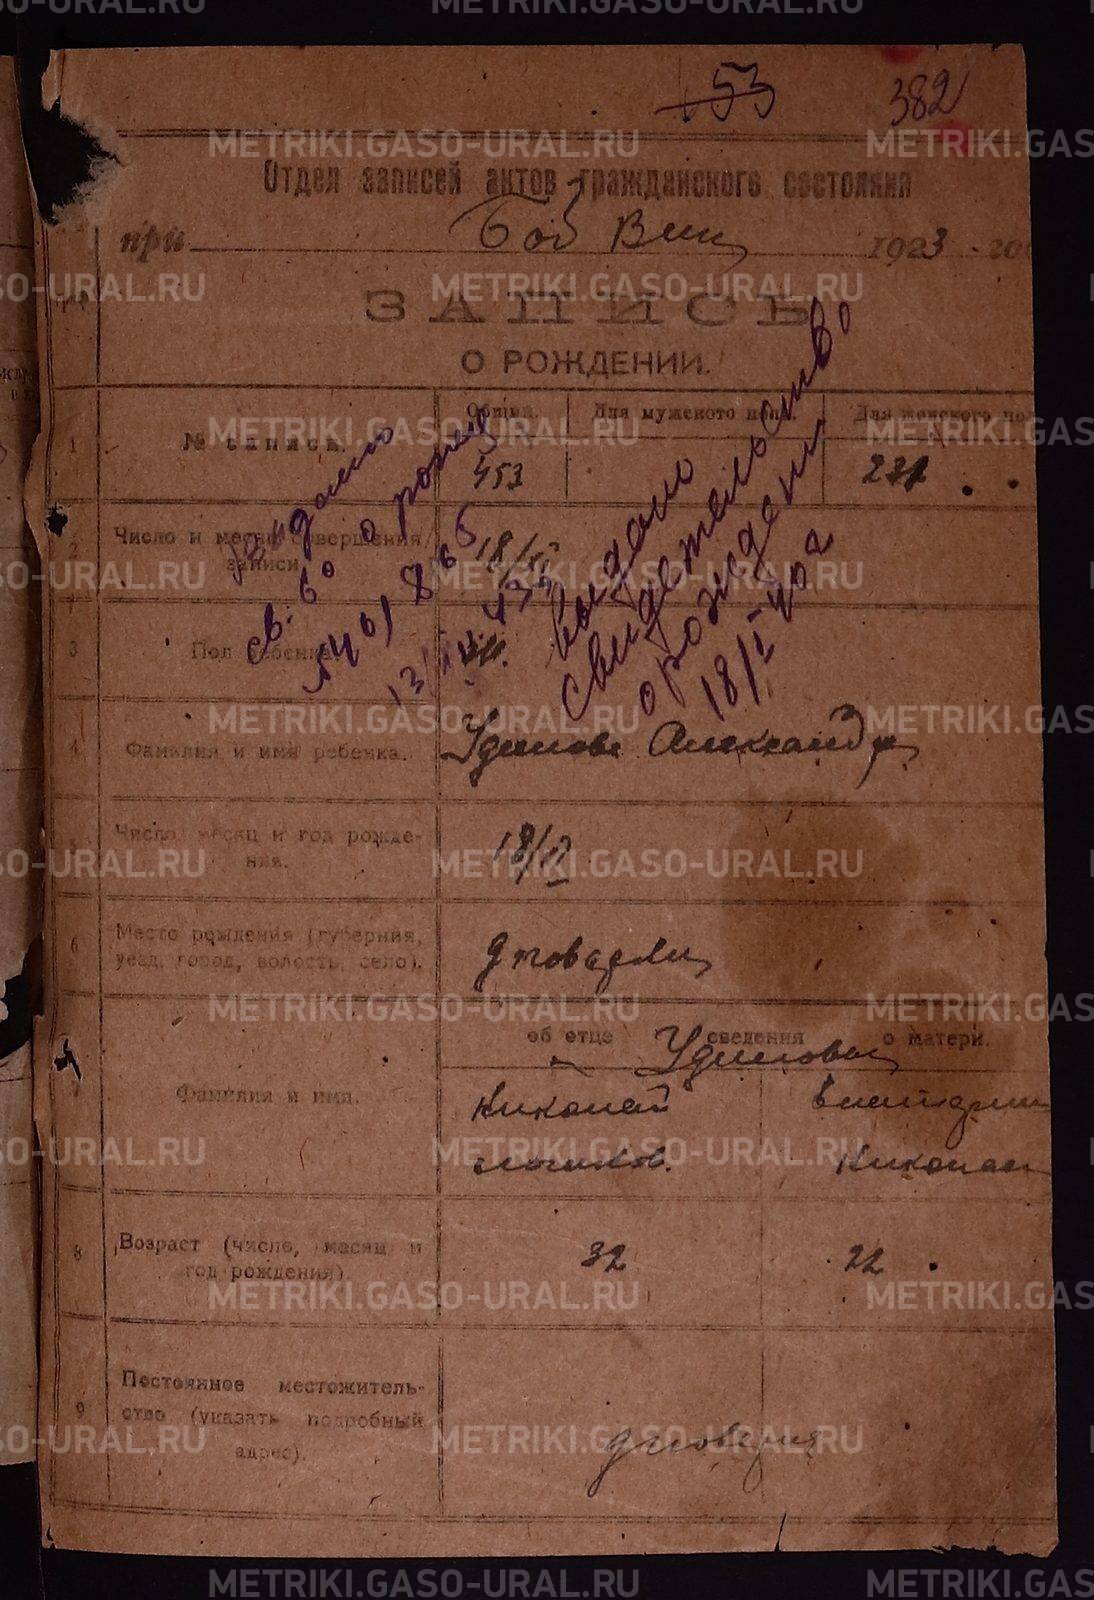 METRIKI.GASO-URAL.RU
53 382
Отдел записей актов гражданского состояния
при Боб Вик 1923 - го
ЗАПИСЬ
О РОЖДЕНИИ.
1 № записи. Общий. Для мужского пола Для женского пол
453 231
2 Число и месяц совершения записи
18/VI
3 Пол ребенка.
выдано
св. во о рожд
13/
выдано
свидетельство
о рождении
18/I 40 г
4 Фамилия и имя ребенка.
Удилова Александра
5 Число месяц и год рожде-
ния.
18/VI
6 Место рождения (губерния,
уезд, город, волость, село).
об отце сведения о матери.
Удиловы
7 Фамилия и имя.
Николай
Николае
8 Возраст (число, месяц и
год рождения)
32 22
9 Постоянное местожитель-
ство (указать подробный
адрес).